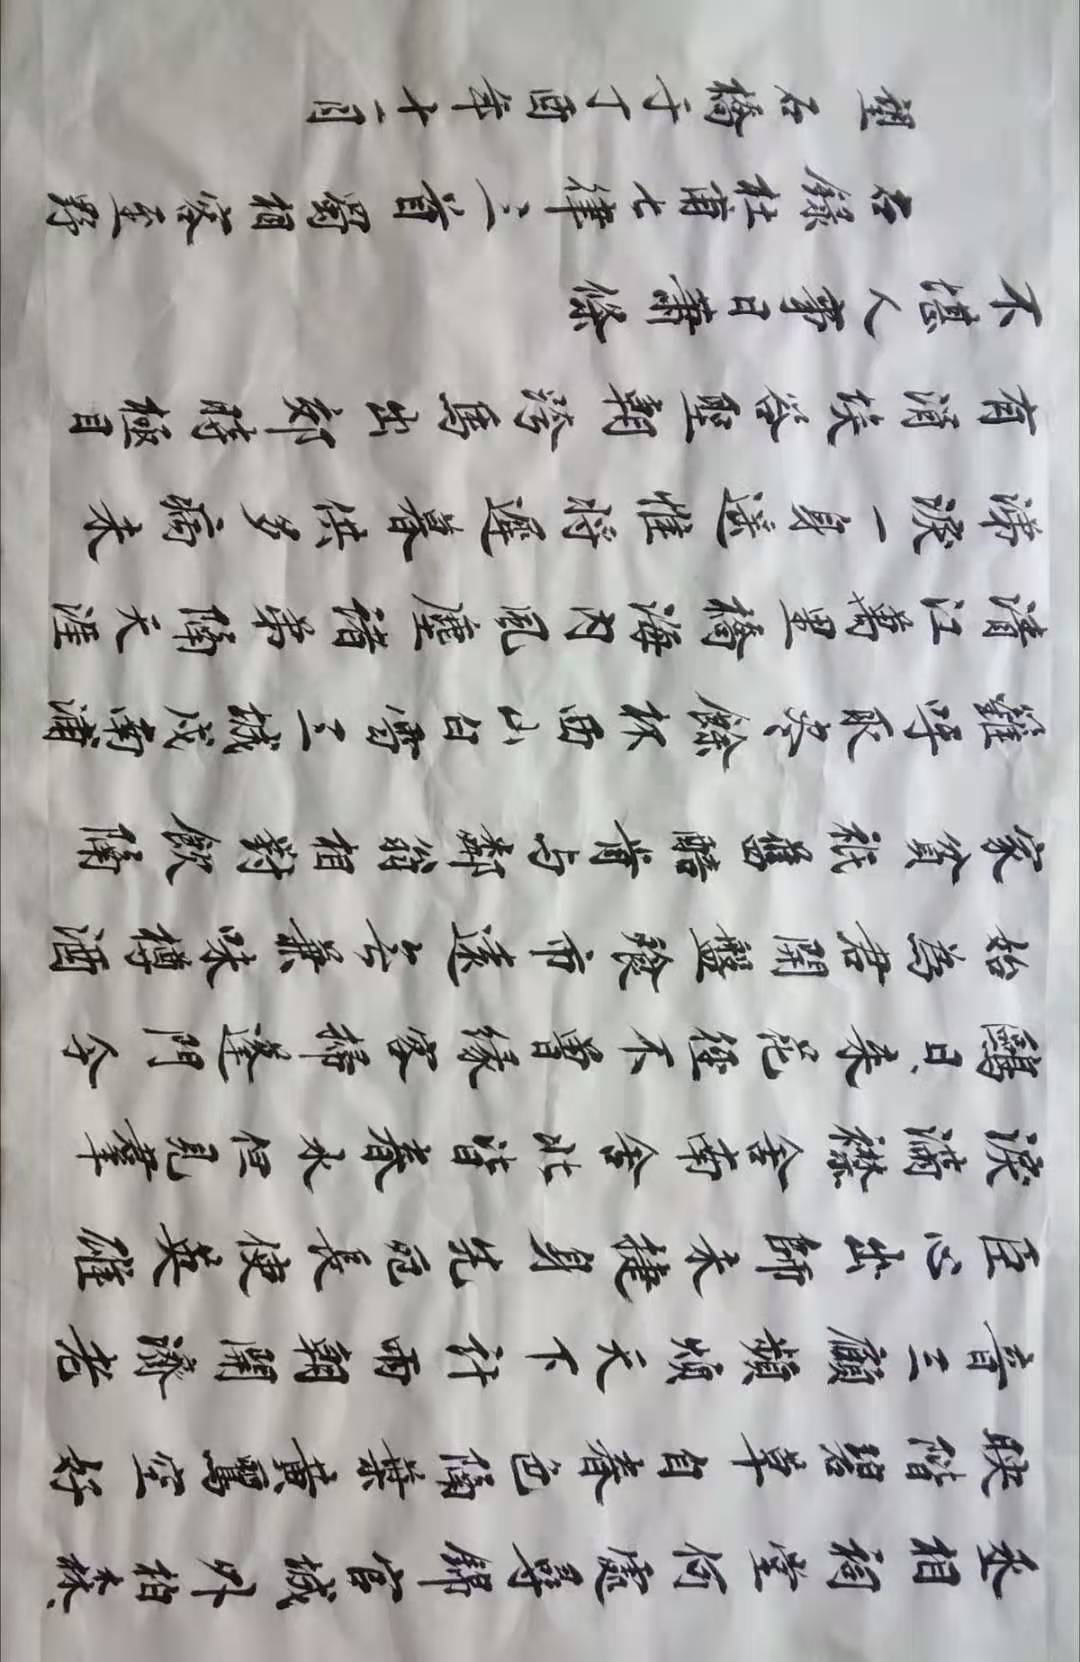 丞相祠堂何處尋錦官城外柏森、
映階碧草自春色隔葉黃鸝空好
音三顧頻煩天下計兩朝開濟老
臣心出師未捷身先死長使英雄
淚滿襟舍南舍北皆春水但見羣
鷗日、來花徑不曾緣客掃蓬門今
始為君開盤飧市遠无兼味樽酒
家貧祇舊醅肯与鄰翁相對飲隔
籬呼取盡餘杯西山白雪三城戍南浦
清江萬里橋海內風塵諸弟隔天涯
涕淚一身遙惟將遲暮供多病未
有涓埃答聖朝跨馬出郊時極目
不堪人事日蕭條
右錄杜甫七律三首蜀相客至野
望石橋于丁酉年十一月